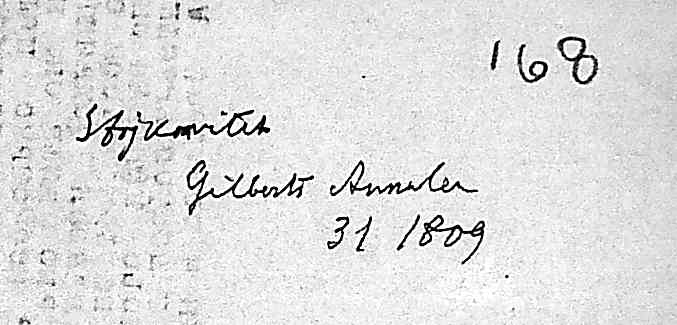 168
Stojkovitch
Gilberts Annalen
31 1809